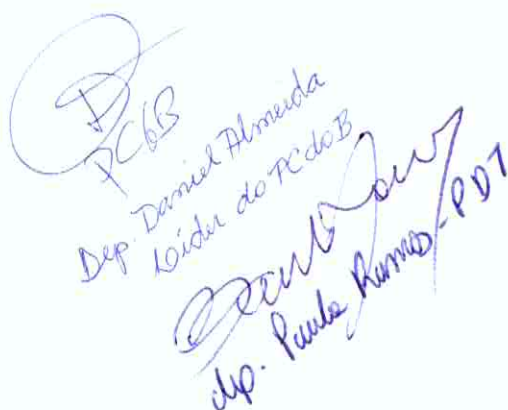 PCdoB
Dep. Daniel Almeida
Líder do PCdoB
dep. Paulo Ramos - PDT